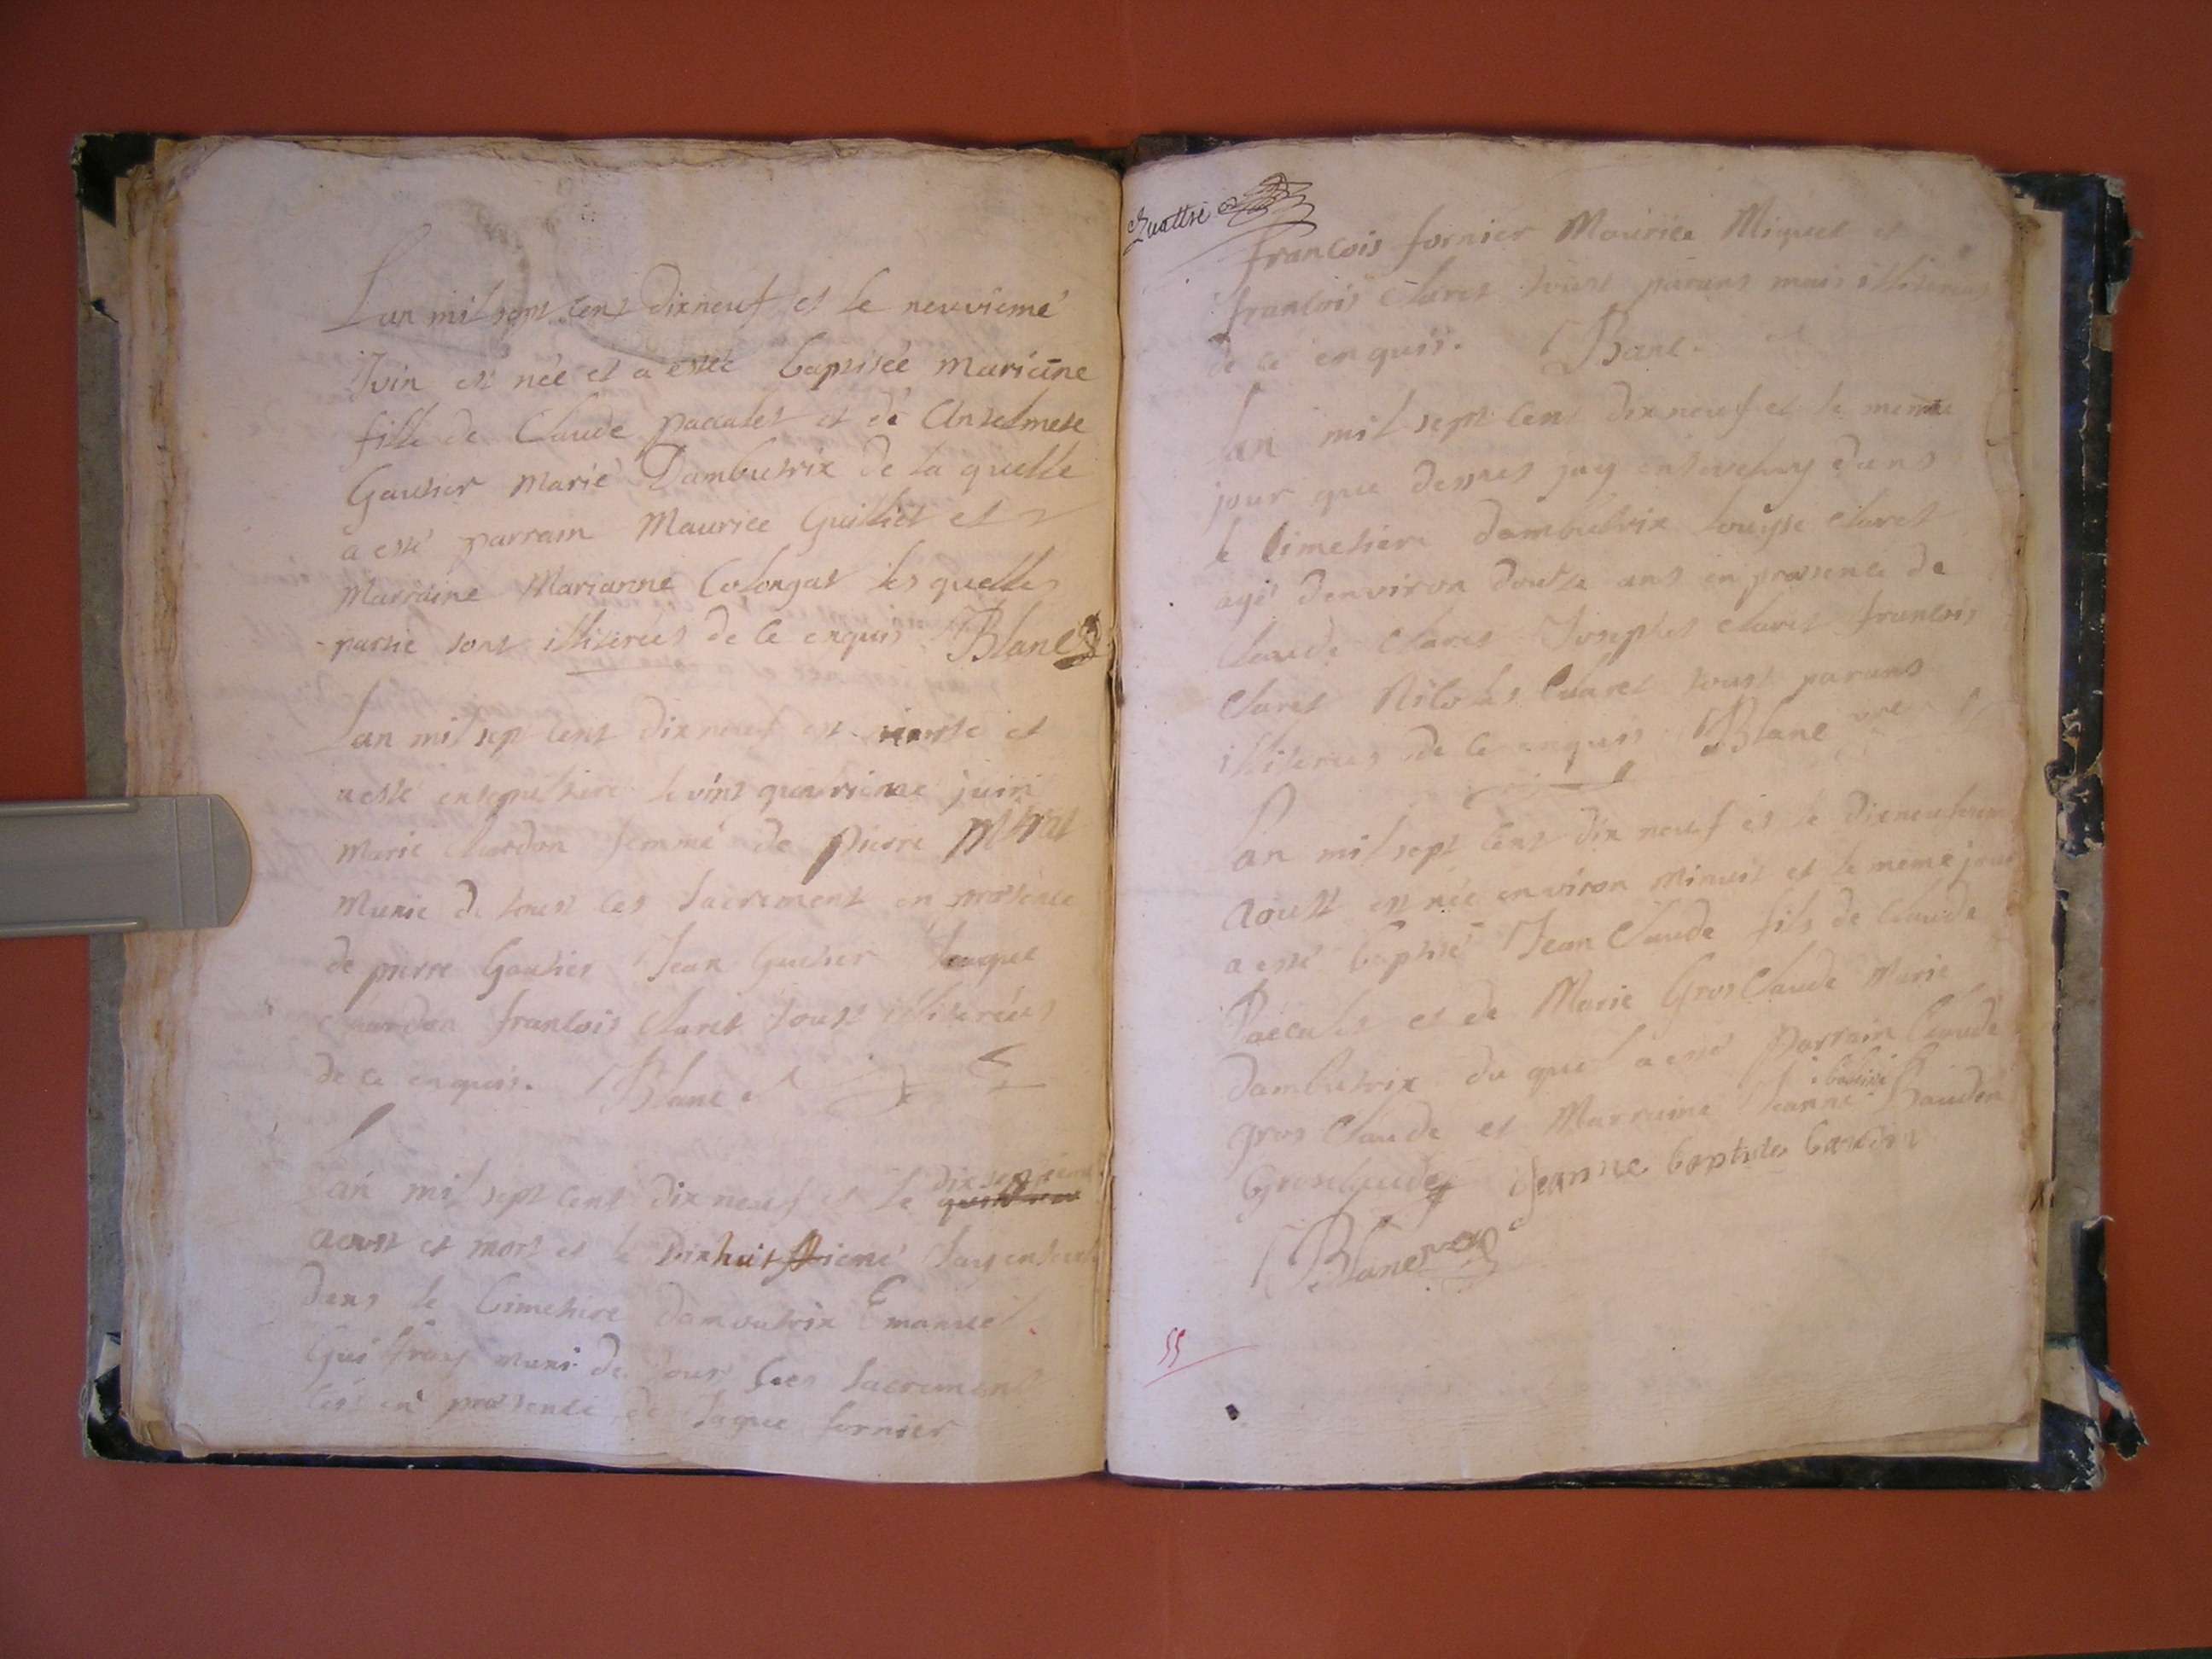 Lan mil sept cent dixneuf et le neuvieme
Juin est née et a estée baptisée Marianne
fille de Claude paccalet et de Antelmete
Gautier Marié Dambutrix de la quelle
a esté parrain Maurice Guilliet et
Marraine Marianne Colongat les quelles
partie sont illiterées de ce enquis Blanc
Lan mil sept cent dixneuf est morte et
a esté le vint quatrieme juin
Marie Chardon femme de pierre
Munie de tous les sacrement en presence
de pierre Gautier Jean Gautier Jaque
Chardon francois Claret tous illiterées
de ce enquis. Blanc
Lan mil sept cent dix neuf et le dix septieme
aoust et mort et le Dixhuit
dans le Cimetiere dambutrix Emanuel
muni de tous les sacrement
en presence de Jaque fornier
Quattre
francois fornier Maurice Miguet et
francois Claret tous parans mais illiteres
de ce enquis. Blanc
Lan mil sept cent dix neuf et le meme
jour que dessus jay ensevely dans
le Cimetiere dambutrix Louyse Claret
agé denviron doutze ans en presence de
Claude Claret Josephet Claret francois
Claret Nicolas Claret tous parans
illiteres de ce enquis Blanc vre
Lan mil sept cent dix neuf et le dixneufvieme
aoust est née environ Minuit et le meme jour
a esté baptisé Jean Claude fils de Claude
Paccalet et de Marie Gros Claude Marié
dambutrix du quel a esté Parrain Claude
gros Claude et Marraine Jeanne baptiste Baudin
Grosclaude Jeanne baptiste baudin
Blanc vre
55